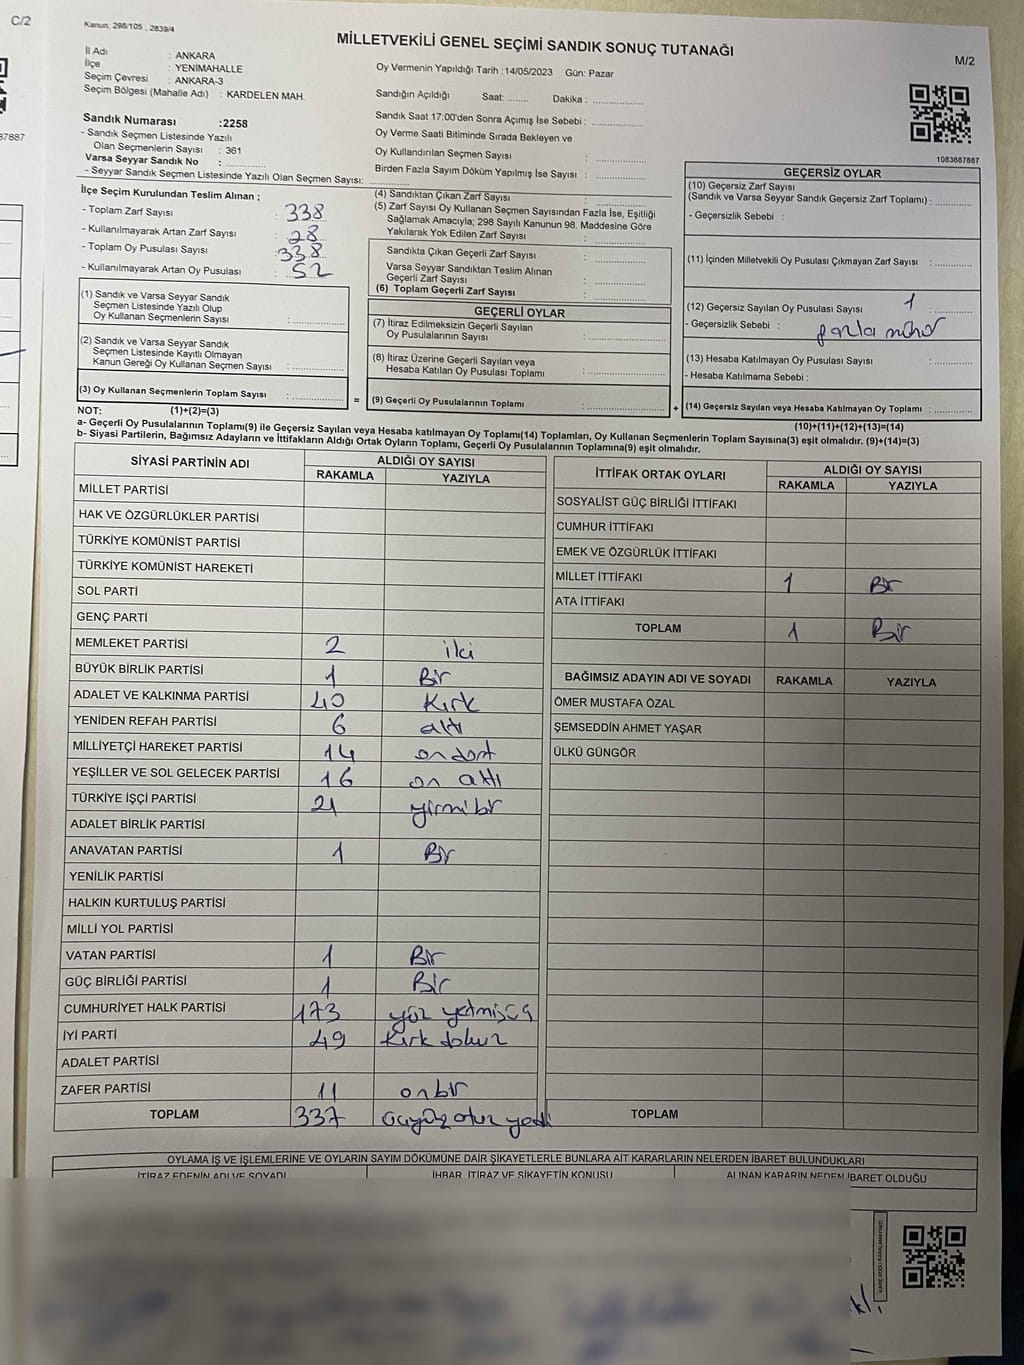 C/2
87887
Kanun; 298/105 , 2839/4
MİLLETVEKİLİ GENEL SEÇİMİ SANDIK SONUÇ TUTANAĞI
M/2
İl Adı : ANKARA
İlçe : YENİMAHALLE
Seçim Çevresi : ANKARA-3
Seçim Bölgesi (Mahalle Adı) : KARDELEN MAH.
Oy Vermenin Yapıldığı Tarih :14/05/2023 Gün: Pazar
Sandığın Açıldığı Saat: ........ Dakika : ....................
Sandık Saat 17:00'den Sonra Açımış İse Sebebi : ....................
Oy Verme Saati Bitiminde Sırada Bekleyen ve
Oy Kullandırılan Seçmen Sayısı : ....................
Birden Fazla Sayım Döküm Yapılmış İse Sayısı : ....................
1083687887
Sandık Numarası :2258
- Sandık Seçmen Listesinde Yazılı
Olan Seçmenlerin Sayısı : 361
Varsa Seyyar Sandık No : ..............
- Seyyar Sandık Seçmen Listesinde Yazılı Olan Seçmen Sayısı: ..............
İlçe Seçim Kurulundan Teslim Alınan ;
- Toplam Zarf Sayısı : 338
- Kullanılmayarak Artan Zarf Sayısı : 28
- Toplam Oy Pusulası Sayısı : 338
- Kullanılmayarak Artan Oy Pusulası : 52
(1) Sandık ve Varsa Seyyar Sandık
Seçmen Listesinde Yazılı Olup
Oy Kullanan Seçmenlerin Sayısı : ....................
(2) Sandık ve Varsa Seyyar Sandık
Seçmen Listesinde Kayıtlı Olmayan
Kanun Gereği Oy Kullanan Seçmen Sayısı : ....................
(3) Oy Kullanan Seçmenlerin Toplam Sayısı : .................... =
(4) Sandıktan Çıkan Zarf Sayısı : ....................
(5) Zarf Sayısı Oy Kullanan Seçmen Sayısından Fazla İse, Eşitliği
Sağlamak Amacıyla; 298 Sayılı Kanunun 98. Maddesine Göre
Yakılarak Yok Edilen Zarf Sayısı : ....................
Sandıkta Çıkan Geçerli Zarf Sayısı : ....................
Varsa Seyyar Sandıktan Teslim Alınan
Geçerli Zarf Sayısı : ....................
(6) Toplam Geçerli Zarf Sayısı : ....................
GEÇERLİ OYLAR
(7) İtiraz Edilmeksizin Geçerli Sayılan
Oy Pusulalarının Sayısı : ....................
(8) İtiraz Üzerine Geçerli Sayılan veya
Hesaba Katılan Oy Pusulası Toplamı : ....................
(9) Geçerli Oy Pusulalarının Toplamı : .................... +
GEÇERSİZ OYLAR
(10) Geçersiz Zarf Sayısı
(Sandık ve Varsa Seyyar Sandık Geçersiz Zarf Toplamı) : ..............
- Geçersizlik Sebebi :
(11) İçinden Milletvekili Oy Pusulası Çıkmayan Zarf Sayısı : ..............
(12) Geçersiz Sayılan Oy Pusulası Sayısı : 1
- Geçersizlik Sebebi : fazla mühür
(13) Hesaba Katılmayan Oy Pusulası Sayısı : ..............
- Hesaba Katılmama Sebebi :
(14) Geçersiz Sayılan veya Hesaba Katılmayan Oy Toplamı : ..............
NOT: (1)+(2)=(3)
(10)+(11)+(12)+(13)=(14)
a- Geçerli Oy Pusulalarının Toplamı(9) ile Geçersiz Sayılan veya Hesaba katılmayan Oy Toplamı(14) Toplamları, Oy Kullanan Seçmenlerin Toplam Sayısına(3) eşit olmalıdır. (9)+(14)=(3)
b- Siyasi Partilerin, Bağımsız Adayların ve İttifakların Aldığı Ortak Oyların Toplamı, Geçerli Oy Pusulalarının Toplamına(9) eşit olmalıdır.
SİYASİ PARTİNİN ADI ALDIĞI OY SAYISI
RAKAMLA YAZIYLA
MİLLET PARTİSİ
HAK VE ÖZGÜRLÜKLER PARTİSİ
TÜRKİYE KOMÜNİST PARTİSİ
TÜRKİYE KOMÜNİST HAREKETİ
SOL PARTİ
GENÇ PARTİ
MEMLEKET PARTİSİ 2 iki
BÜYÜK BİRLİK PARTİSİ 1 Bir
ADALET VE KALKINMA PARTİSİ 40 Kırk
YENİDEN REFAH PARTİSİ 6 altı
MİLLİYETÇİ HAREKET PARTİSİ 14 on dört
YEŞİLLER VE SOL GELECEK PARTİSİ 16 on altı
TÜRKİYE İŞÇİ PARTİSİ 21 yirmi bir
ADALET BİRLİK PARTİSİ
ANAVATAN PARTİSİ 1 Bir
YENİLİK PARTİSİ
HALKIN KURTULUŞ PARTİSİ
MİLLİ YOL PARTİSİ
VATAN PARTİSİ 1 Bir
GÜÇ BİRLİĞİ PARTİSİ 1 Bir
CUMHURİYET HALK PARTİSİ 173 yüz yetmişüç
İYİ PARTİ 49 Kırk dokuz
ADALET PARTİSİ
ZAFER PARTİSİ 11 onbir
TOPLAM 337 üçyüz otuz yedi
İTTİFAK ORTAK OYLARI ALDIĞI OY SAYISI
RAKAMLA YAZIYLA
SOSYALİST GÜÇ BİRLİĞİ İTTİFAKI
CUMHUR İTTİFAKI
EMEK VE ÖZGÜRLÜK İTTİFAKI
MİLLET İTTİFAKI 1 Bir
ATA İTTİFAKI
TOPLAM 1 Bir
BAĞIMSIZ ADAYIN ADI VE SOYADI RAKAMLA YAZIYLA
ÖMER MUSTAFA ÖZAL
ŞEMSEDDİN AHMET YAŞAR
ÜLKÜ GÜNGÖR
TOPLAM
OYLAMA İŞ VE İŞLEMLERİNE VE OYLARIN SAYIM DÖKÜMÜNE DAİR ŞİKAYETLERLE BUNLARA AİT KARARLARIN NELERDEN İBARET BULUNDUKLARI
İTİRAZ EDENİN ADI VE SOYADI İHBAR, İTİRAZ VE ŞİKAYETİN KONUSU ALINAN KARARIN NEDEN İBARET OLDUĞU